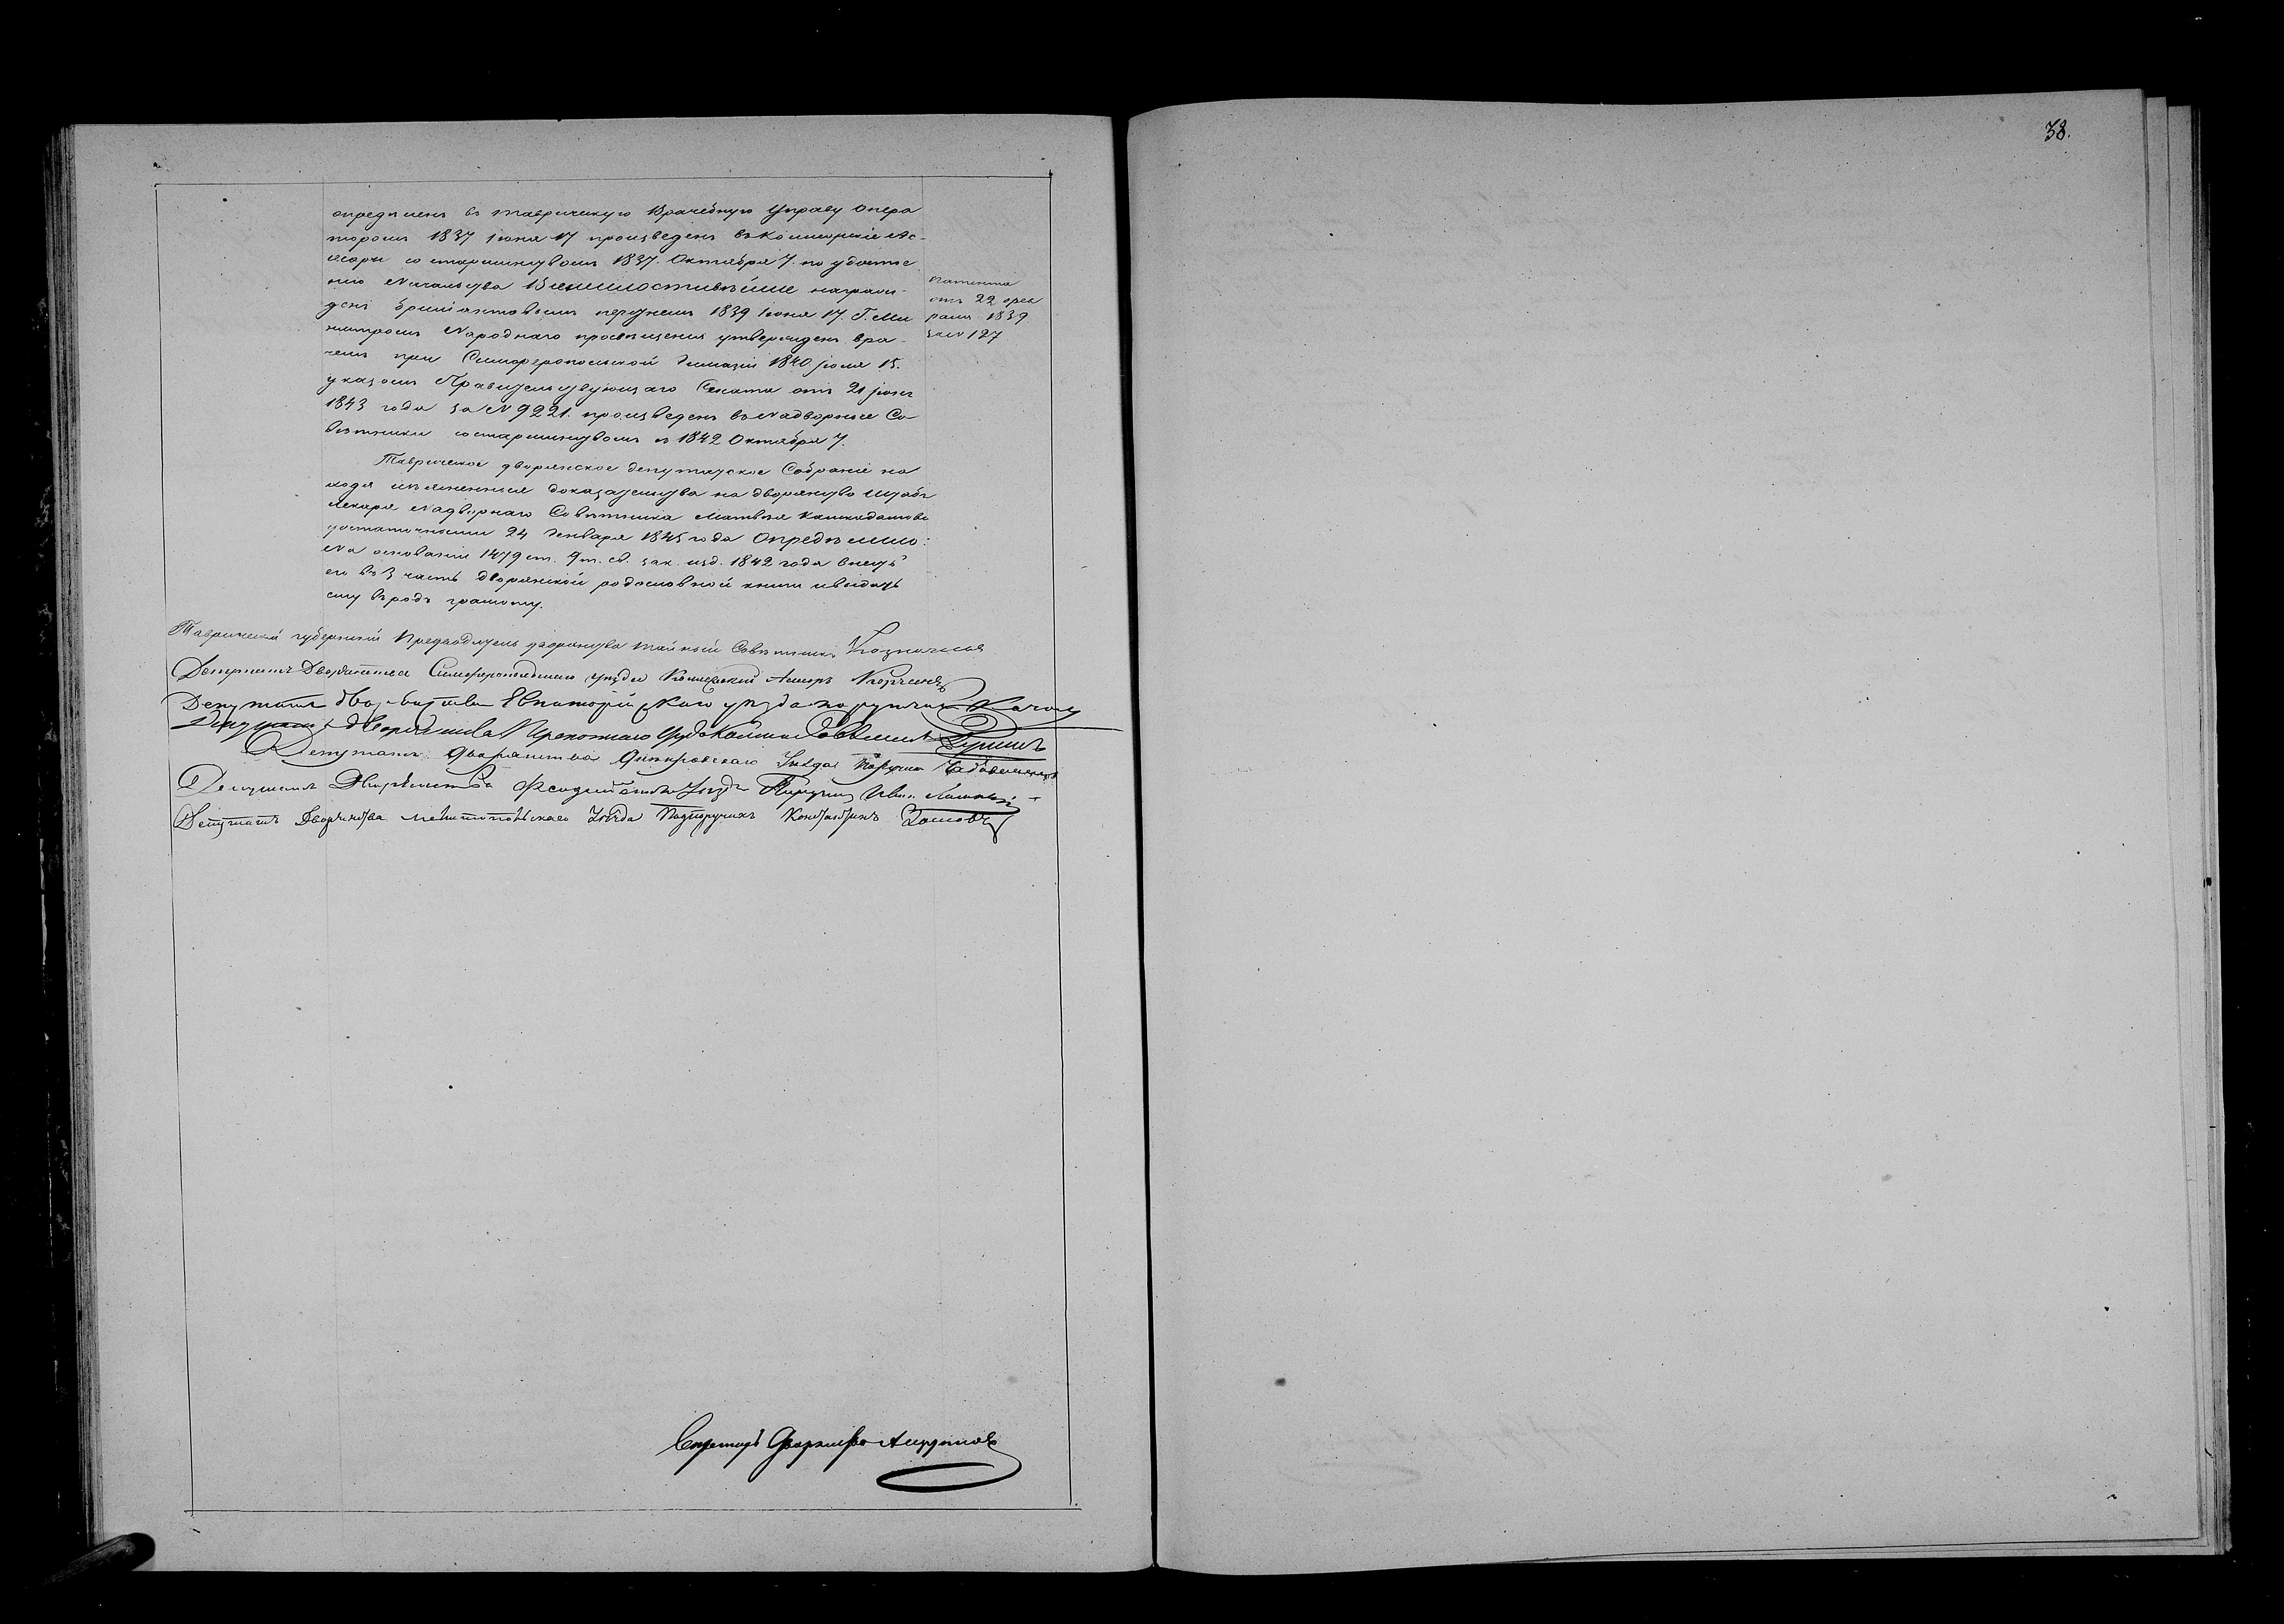 38.
опредѣленъ въ Таврическую Врачебную Управу Опера
торомъ 1837 Іюня 17 произведенъ въ Коллежскіе Ас-
сесоры со старшинствомъ 1837. Октября 7. по удостое
нію Начальства Всемилостивѣйше награж-
денъ брилліантовымъ перстнемъ 1839 Іюня 17. Г. Ми
нистромъ Народнаго просвѣщенія утвержденъ вра-
чемъ при Симферопольской Гимназіи 1840. Іюля 15.
указомъ Правительствующаго Сената отъ 21 Іюня
1843 года за № 9221. произведенъ въ Надворные Со-
вѣтники со старшинствомъ съ 1842 Октября 7.
патента
отъ 22 фев
раля 1839
за № 127
Таврическое дворянское депутатское Собраніе на
ходя изъясненныя доказательства на дворянство Штабъ
Лекаря Надворнаго Совѣтника Матвѣя
достаточными 24 Генваря 1845 года Опредѣлило:
На основаніи 1479 ст. 9 т. св. зак. изд. 1842 года внесть
его въ 3 часть дворянской родословной книги и выдать
ему въ родъ грамоту.
Таврическій губернскій Предводитель дворянства тайный Совѣтникъ Казначеевъ
Депутатъ Дворянства Симферопольскаго уѣзда Коллежскій Асесоръ
Депутатъ дворянства Евпаторійскаго уѣзда поручикъ
Депутатъ дворянства Перекопскаго уѣзда Совѣтникъ
Депутатъ дворянства Днѣпровскаго Уѣзда Поручикъ
Депутатъ Дворянства Ѳеодосійскаго Уѣзда Поручикъ Иван
Депутатъ Дворянства Мелитопольскаго Уѣзда Подпоручикъ Константинъ
Секретарь Дворянства